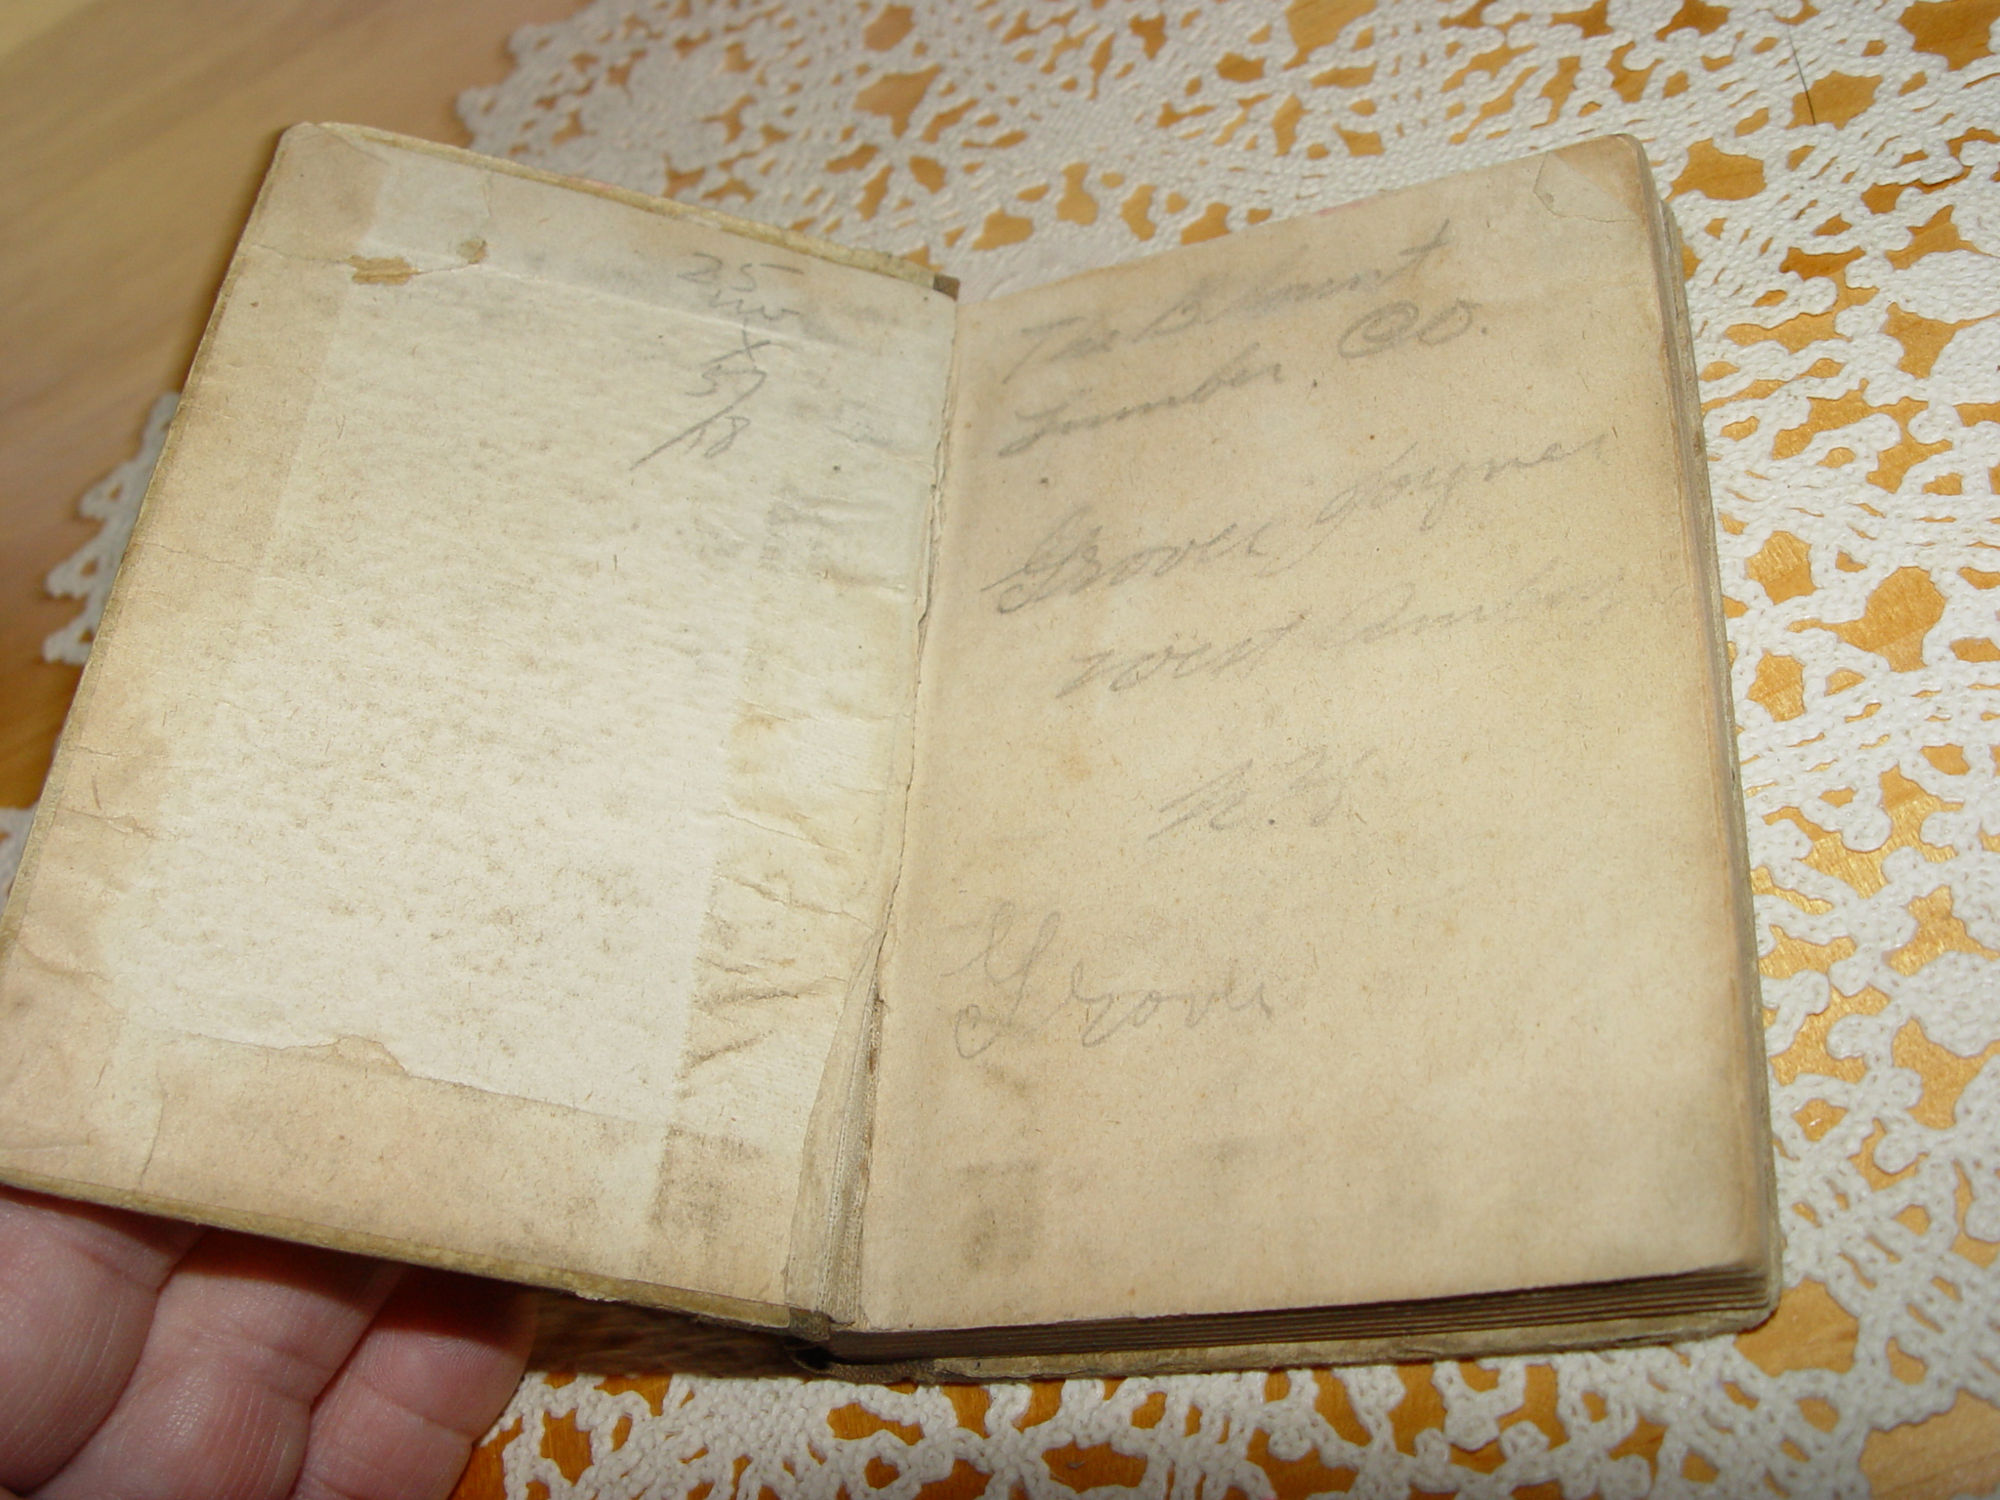 25
X
57
18
The Blount
Lumber CO.
Grover Joyner
West
N.Y.
Grover